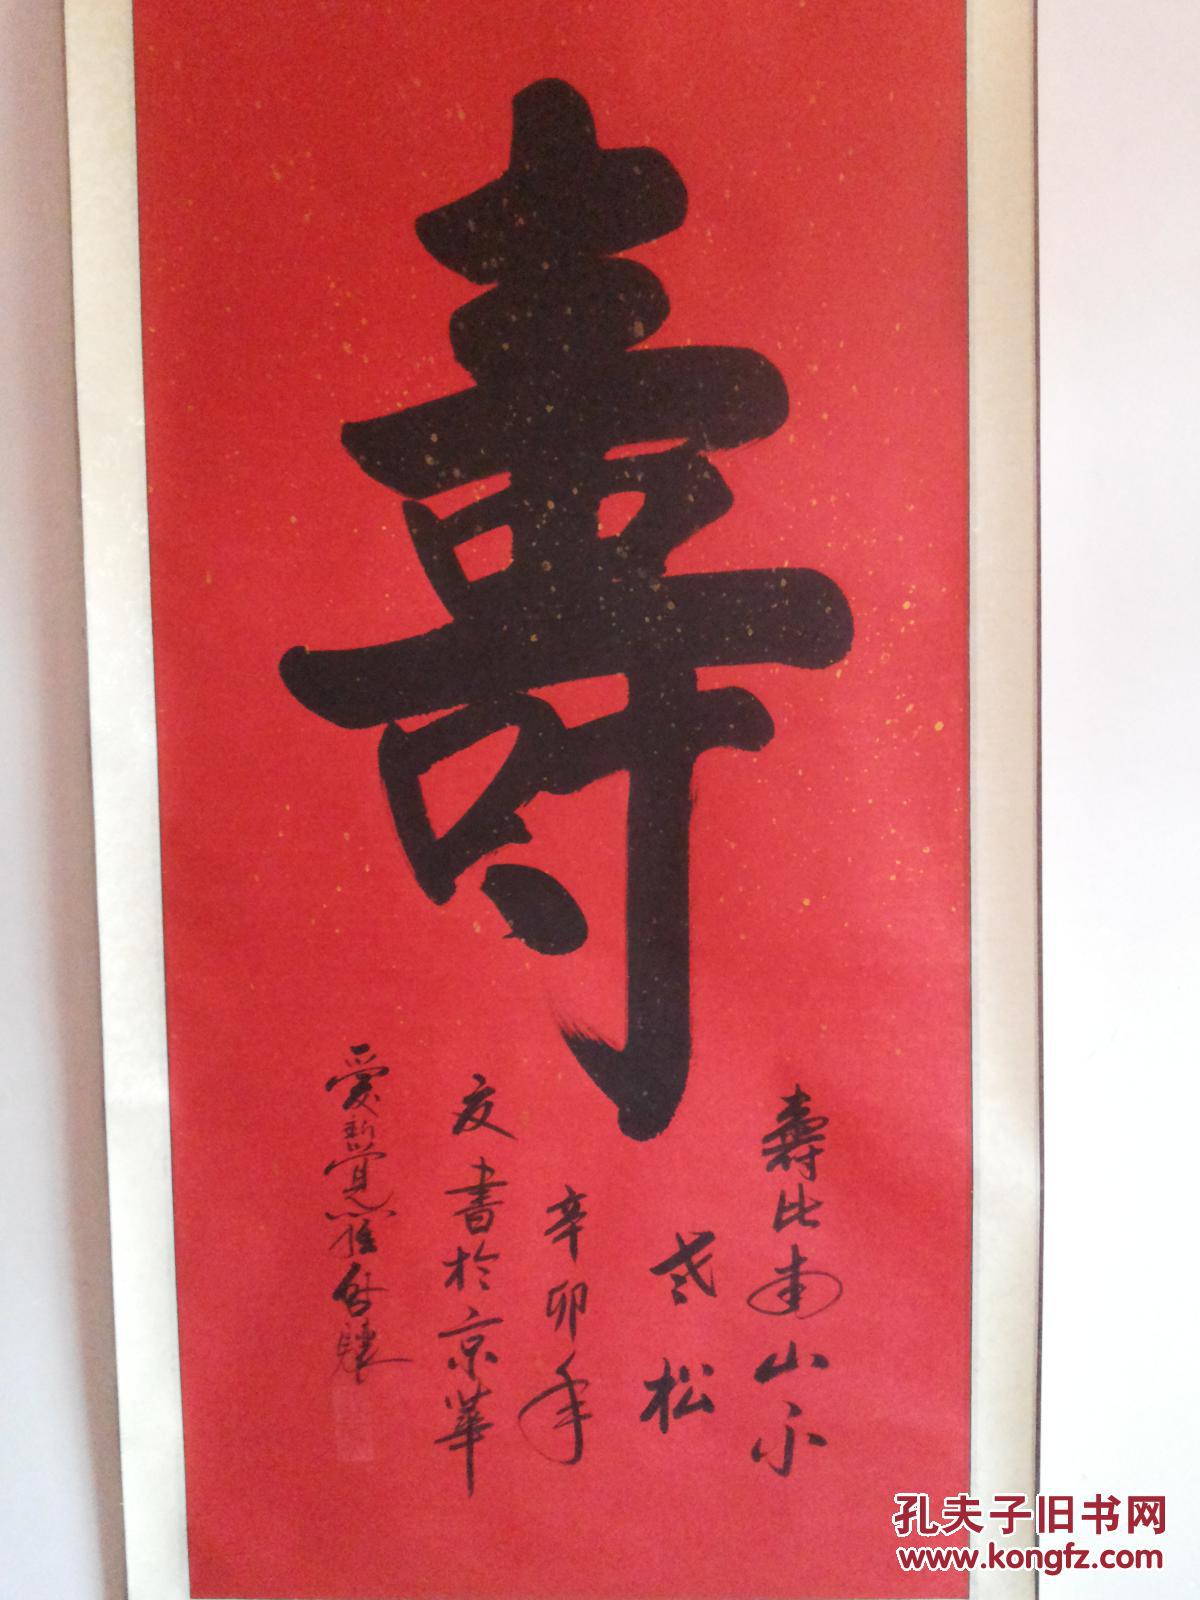 壽
壽比南山不
老松
辛卯年
夏書於京華
愛新覺羅啟驤
孔夫子旧书网
www.kongfz.com